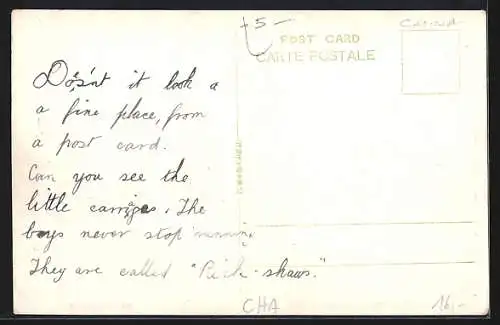 5-
Canada
POST CARD
CARTE POSTALE
Does'nt it look a
a fine place, from
a post card.
Can you see the
little carriges. The
boys never stop running
They are called "Rick-shaws."
CHA
16,-